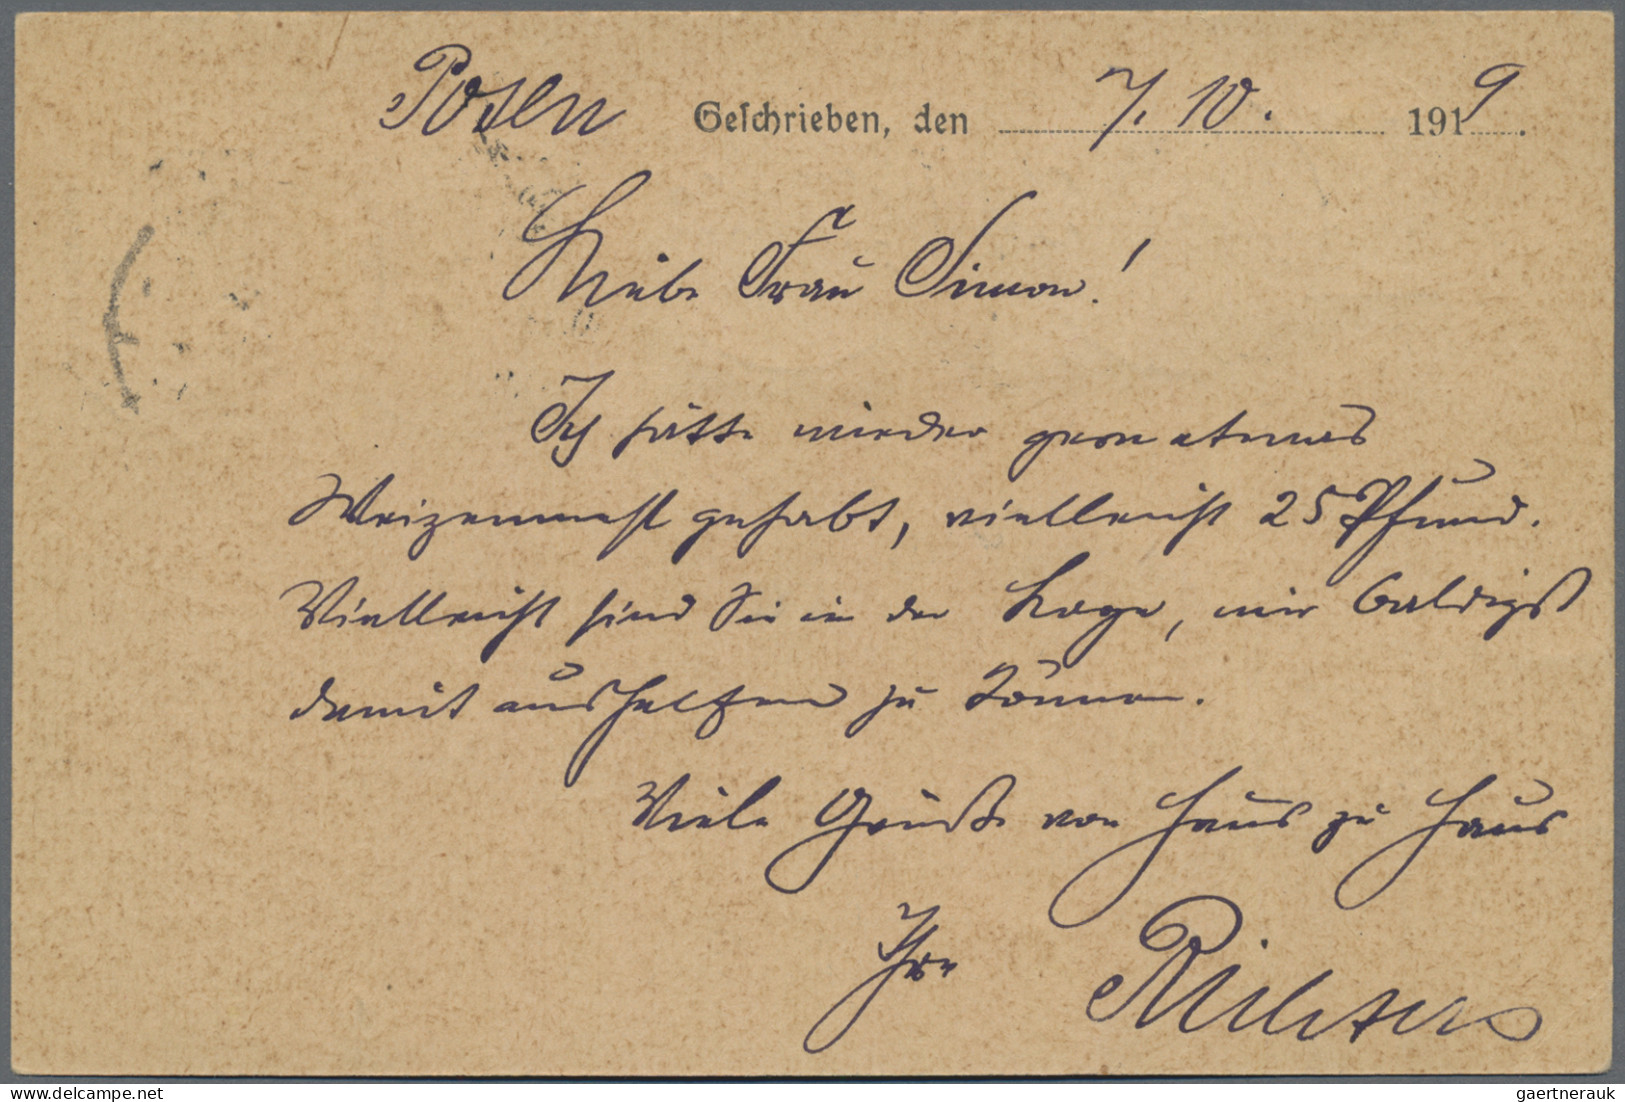 Posen Geschrieben, den 7. 10. 1919.
Liebe Frau Simon!
Ich hätte wieder gern etwas
Weizenmehl gehabt, vielleicht 25 Pfund.
Vielleicht sind Sie in der Lage, mir baldigst
damit aushelfen zu können.
Viele Grüße von Haus zu Haus
Ihr
gaertnerauk